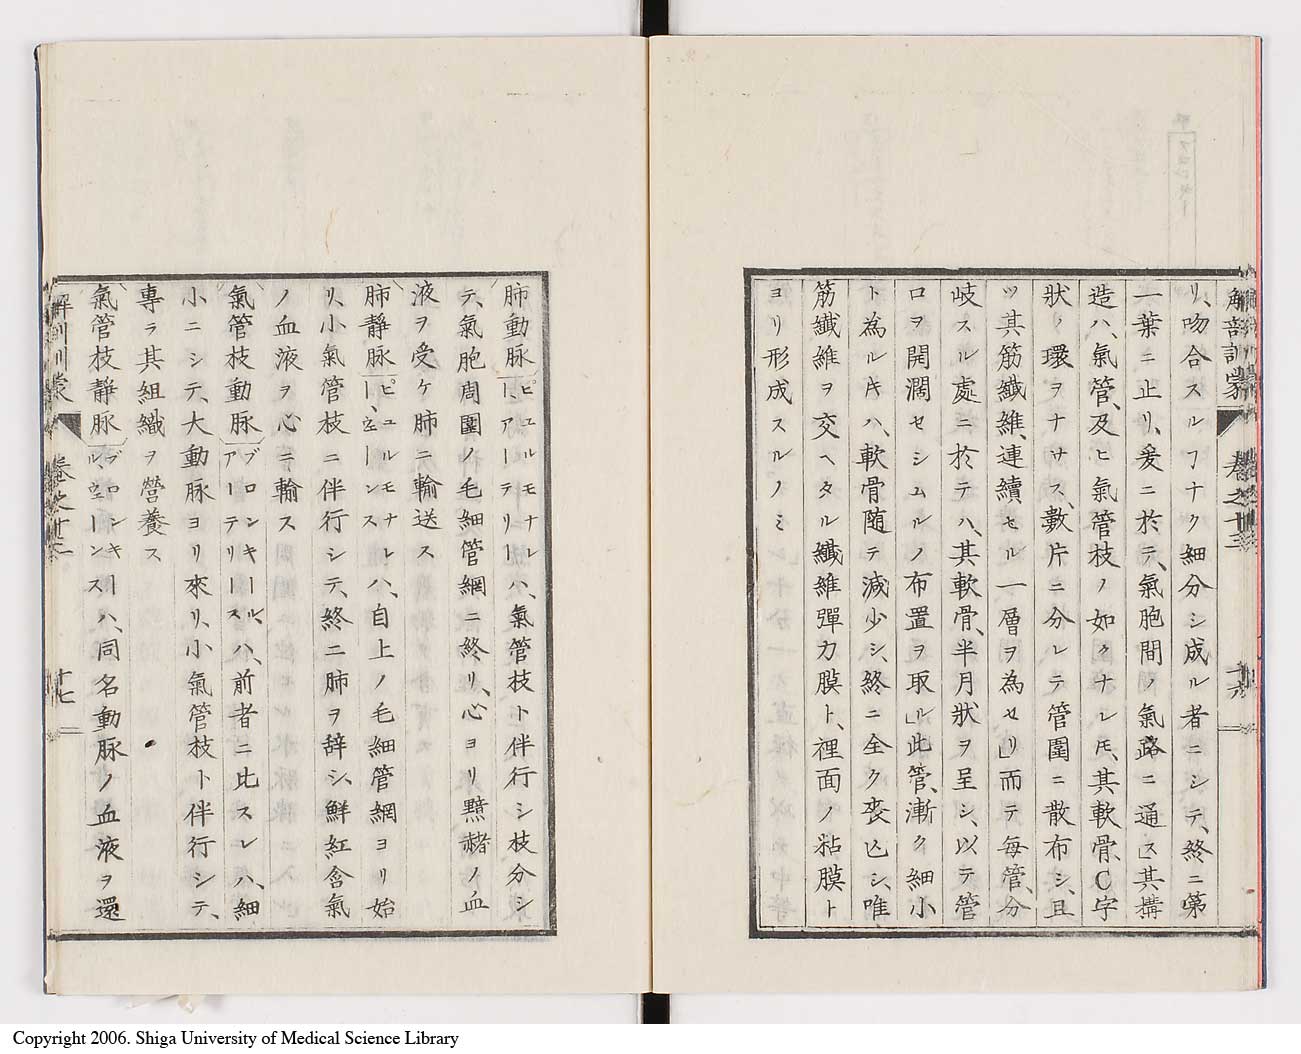 解剖訓蒙 卷之十三 十六
リ、吻合スルヿナク細分シ成ル者ニシテ、終ニ第
一葉ニ止リ、爰ニ於テ、氣胞間ノ氣路ニ通ス」其搆
造ハ、氣管、及ヒ氣管枝ノ如クナレ𪜈、其軟骨、C字
狀ノ環ヲナサス、數片ニ分レテ管圍ニ散布シ、且
ツ其筋纎維、連續セル一層ヲ為セリ」而テ每管、分
岐スル處ニ於テハ、其軟骨、半月狀ヲ呈シ、以テ管
口ヲ開濶セシムルノ布置ヲ取ル」此管、漸ク細小
ト為ルキハ、軟骨随テ減少シ、終ニ全ク丧亾シ、唯
筋纎維ヲ交ヘタル纎維彈力膜ト、裡面ノ粘膜ト
ヨリ形成スルノミ
肺動脈ピユルモナレー、アーテリーハ、氣管枝ト伴行シ枝分シ
テ、氣胞周圍ノ毛細管網ニ終リ、心ヨリ黯赭ノ血
液ヲ受ケ肺ニ輸送ス
肺靜脈ピユルモナルー、ヱーンスハ、自上ノ毛細管網ヨリ始
リ、小氣管枝ニ伴行シテ、終ニ肺ヲ辞シ、鮮紅含氣
ノ血液ヲ心ニ輸ス
氣管枝動脈ブロンキールアーテリースハ、前者ニ比スレハ、細
小ニシテ、大動脈ヨリ來リ、小氣管枝ト伴行シテ、
專ラ其組織ヲ營養ス
氣管枝靜脈ブロンキール、ヱーンスハ、同名動脈ノ血液ヲ還
解訓蒙 卷之十三 十七
Copyright 2006. Shiga University of Medical Science Library